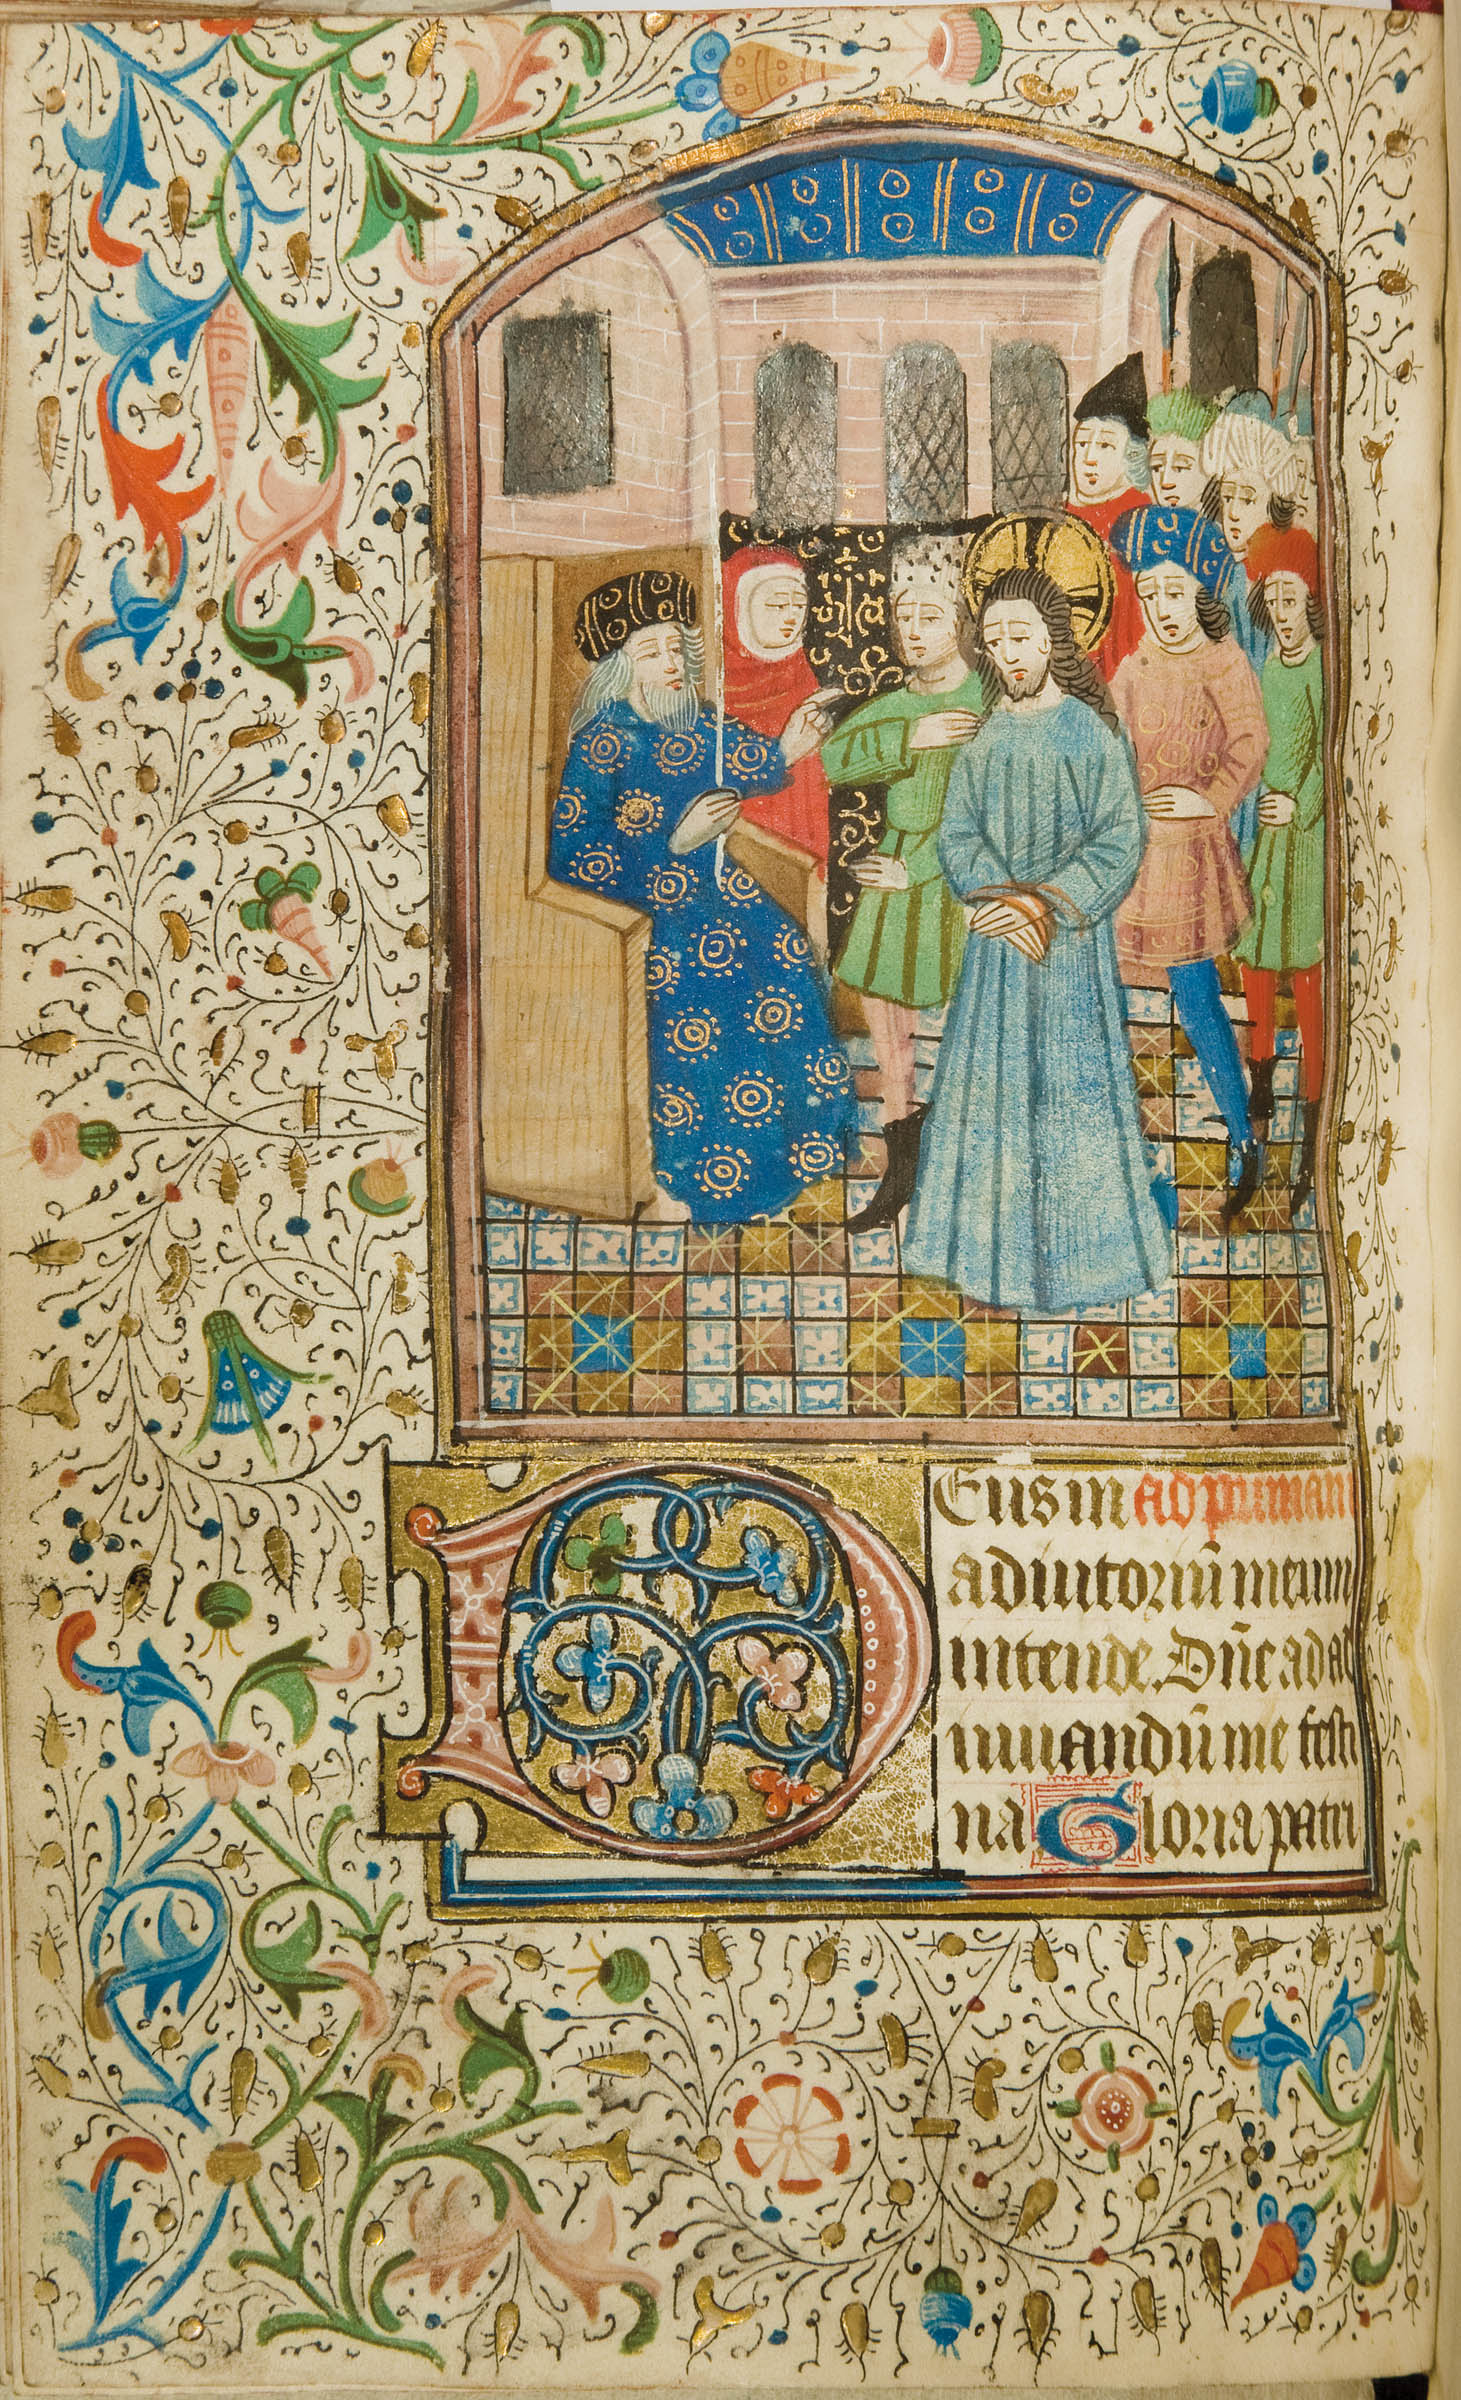 Eus in Ad primam
adiutoriū meum
intende. Dñe ad ad
iuuandū me festi
na Gloria patri